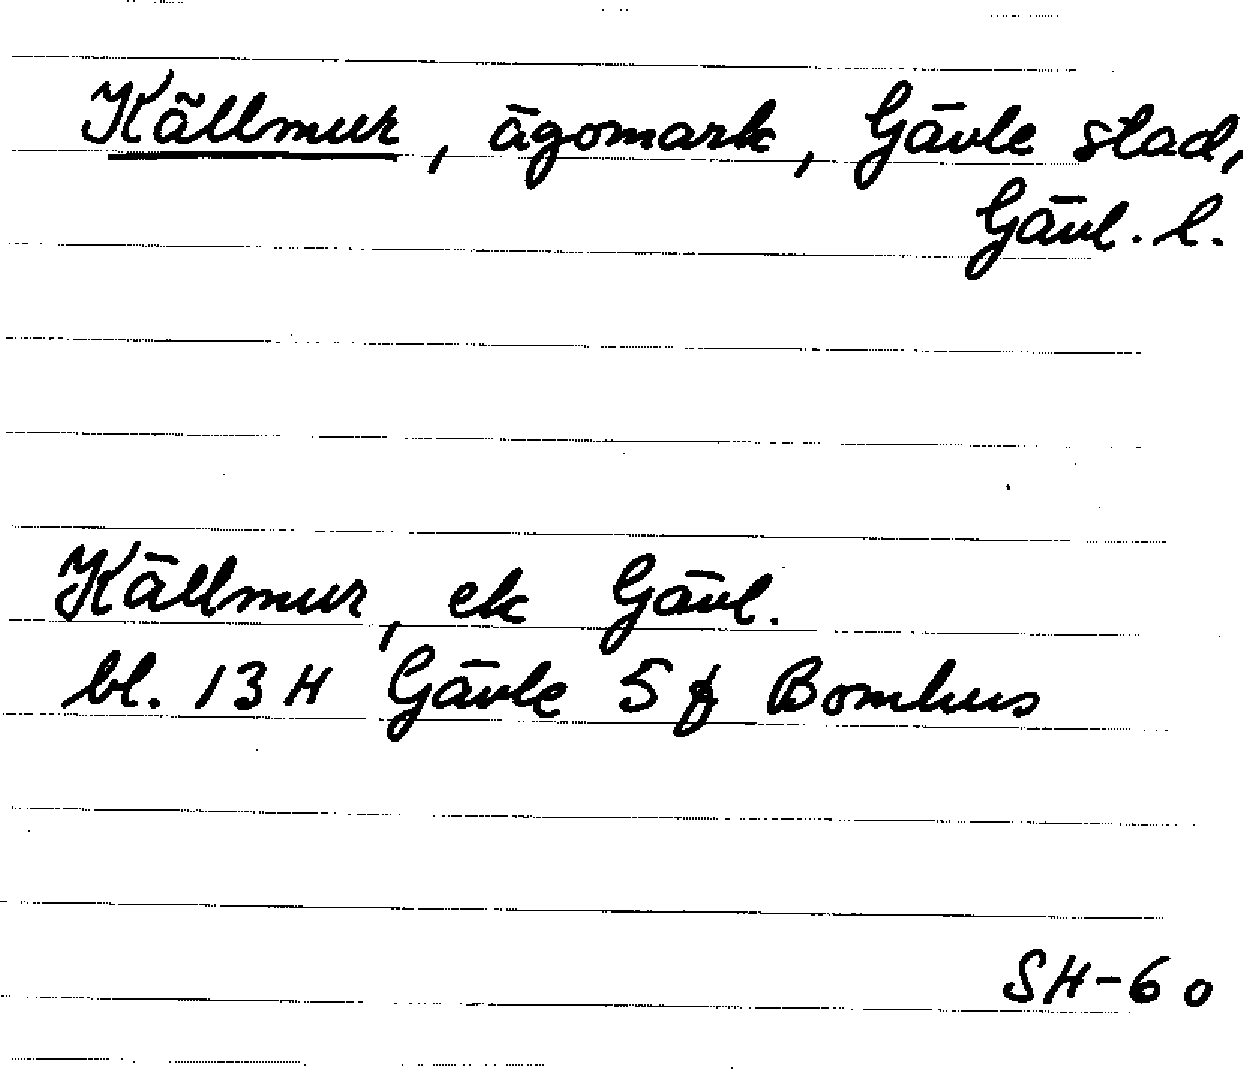 Källmur, ägomark, Gävle stad,
Gävl. l.
Källmur, ek Gävl.
bl. 13H Gävle 5f Bomhus
SH-60